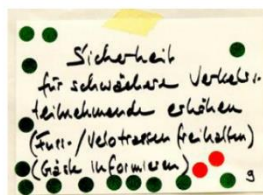 Sicherheit
für schwächere Verkehrs-
teilnehmende erhöhen
(Fuss-/Velotrassen freihalten)
(Gäste informieren)
9